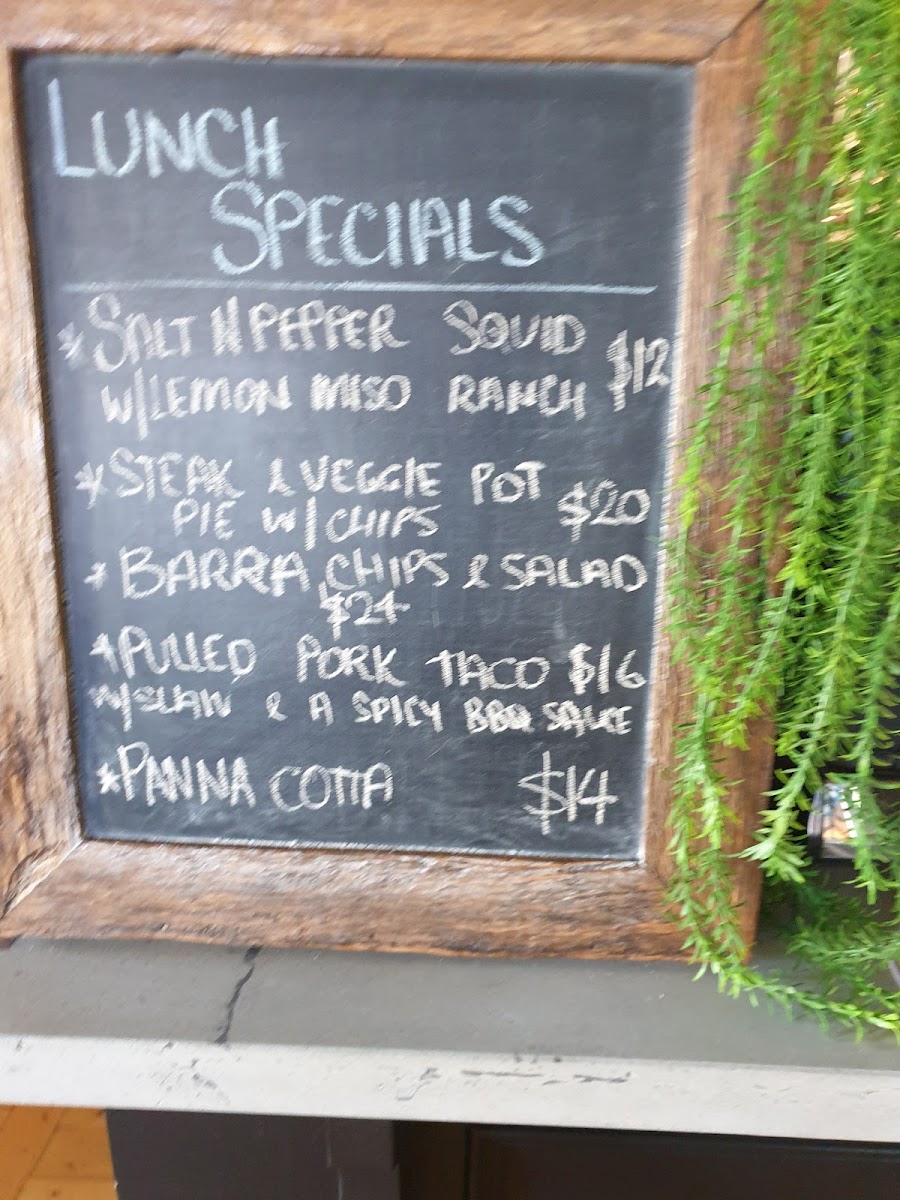 LUNCH
SPECIALS
* SALT N PEPPER SQUID $12
W/LEMON MISO RANCH
* STEAK & VEGGIE POT
PIE W/ CHIPS $20
* BARRA, CHIPS & SALAD
$24
* PULLED PORK TACO $16
W/SLAW & A SPICY BBQ SAUCE
* PANNA COTTA $14